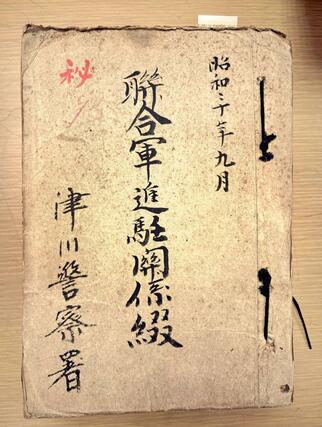 昭和二十年九月
聯合軍進駐関係綴
秘
津川警察署